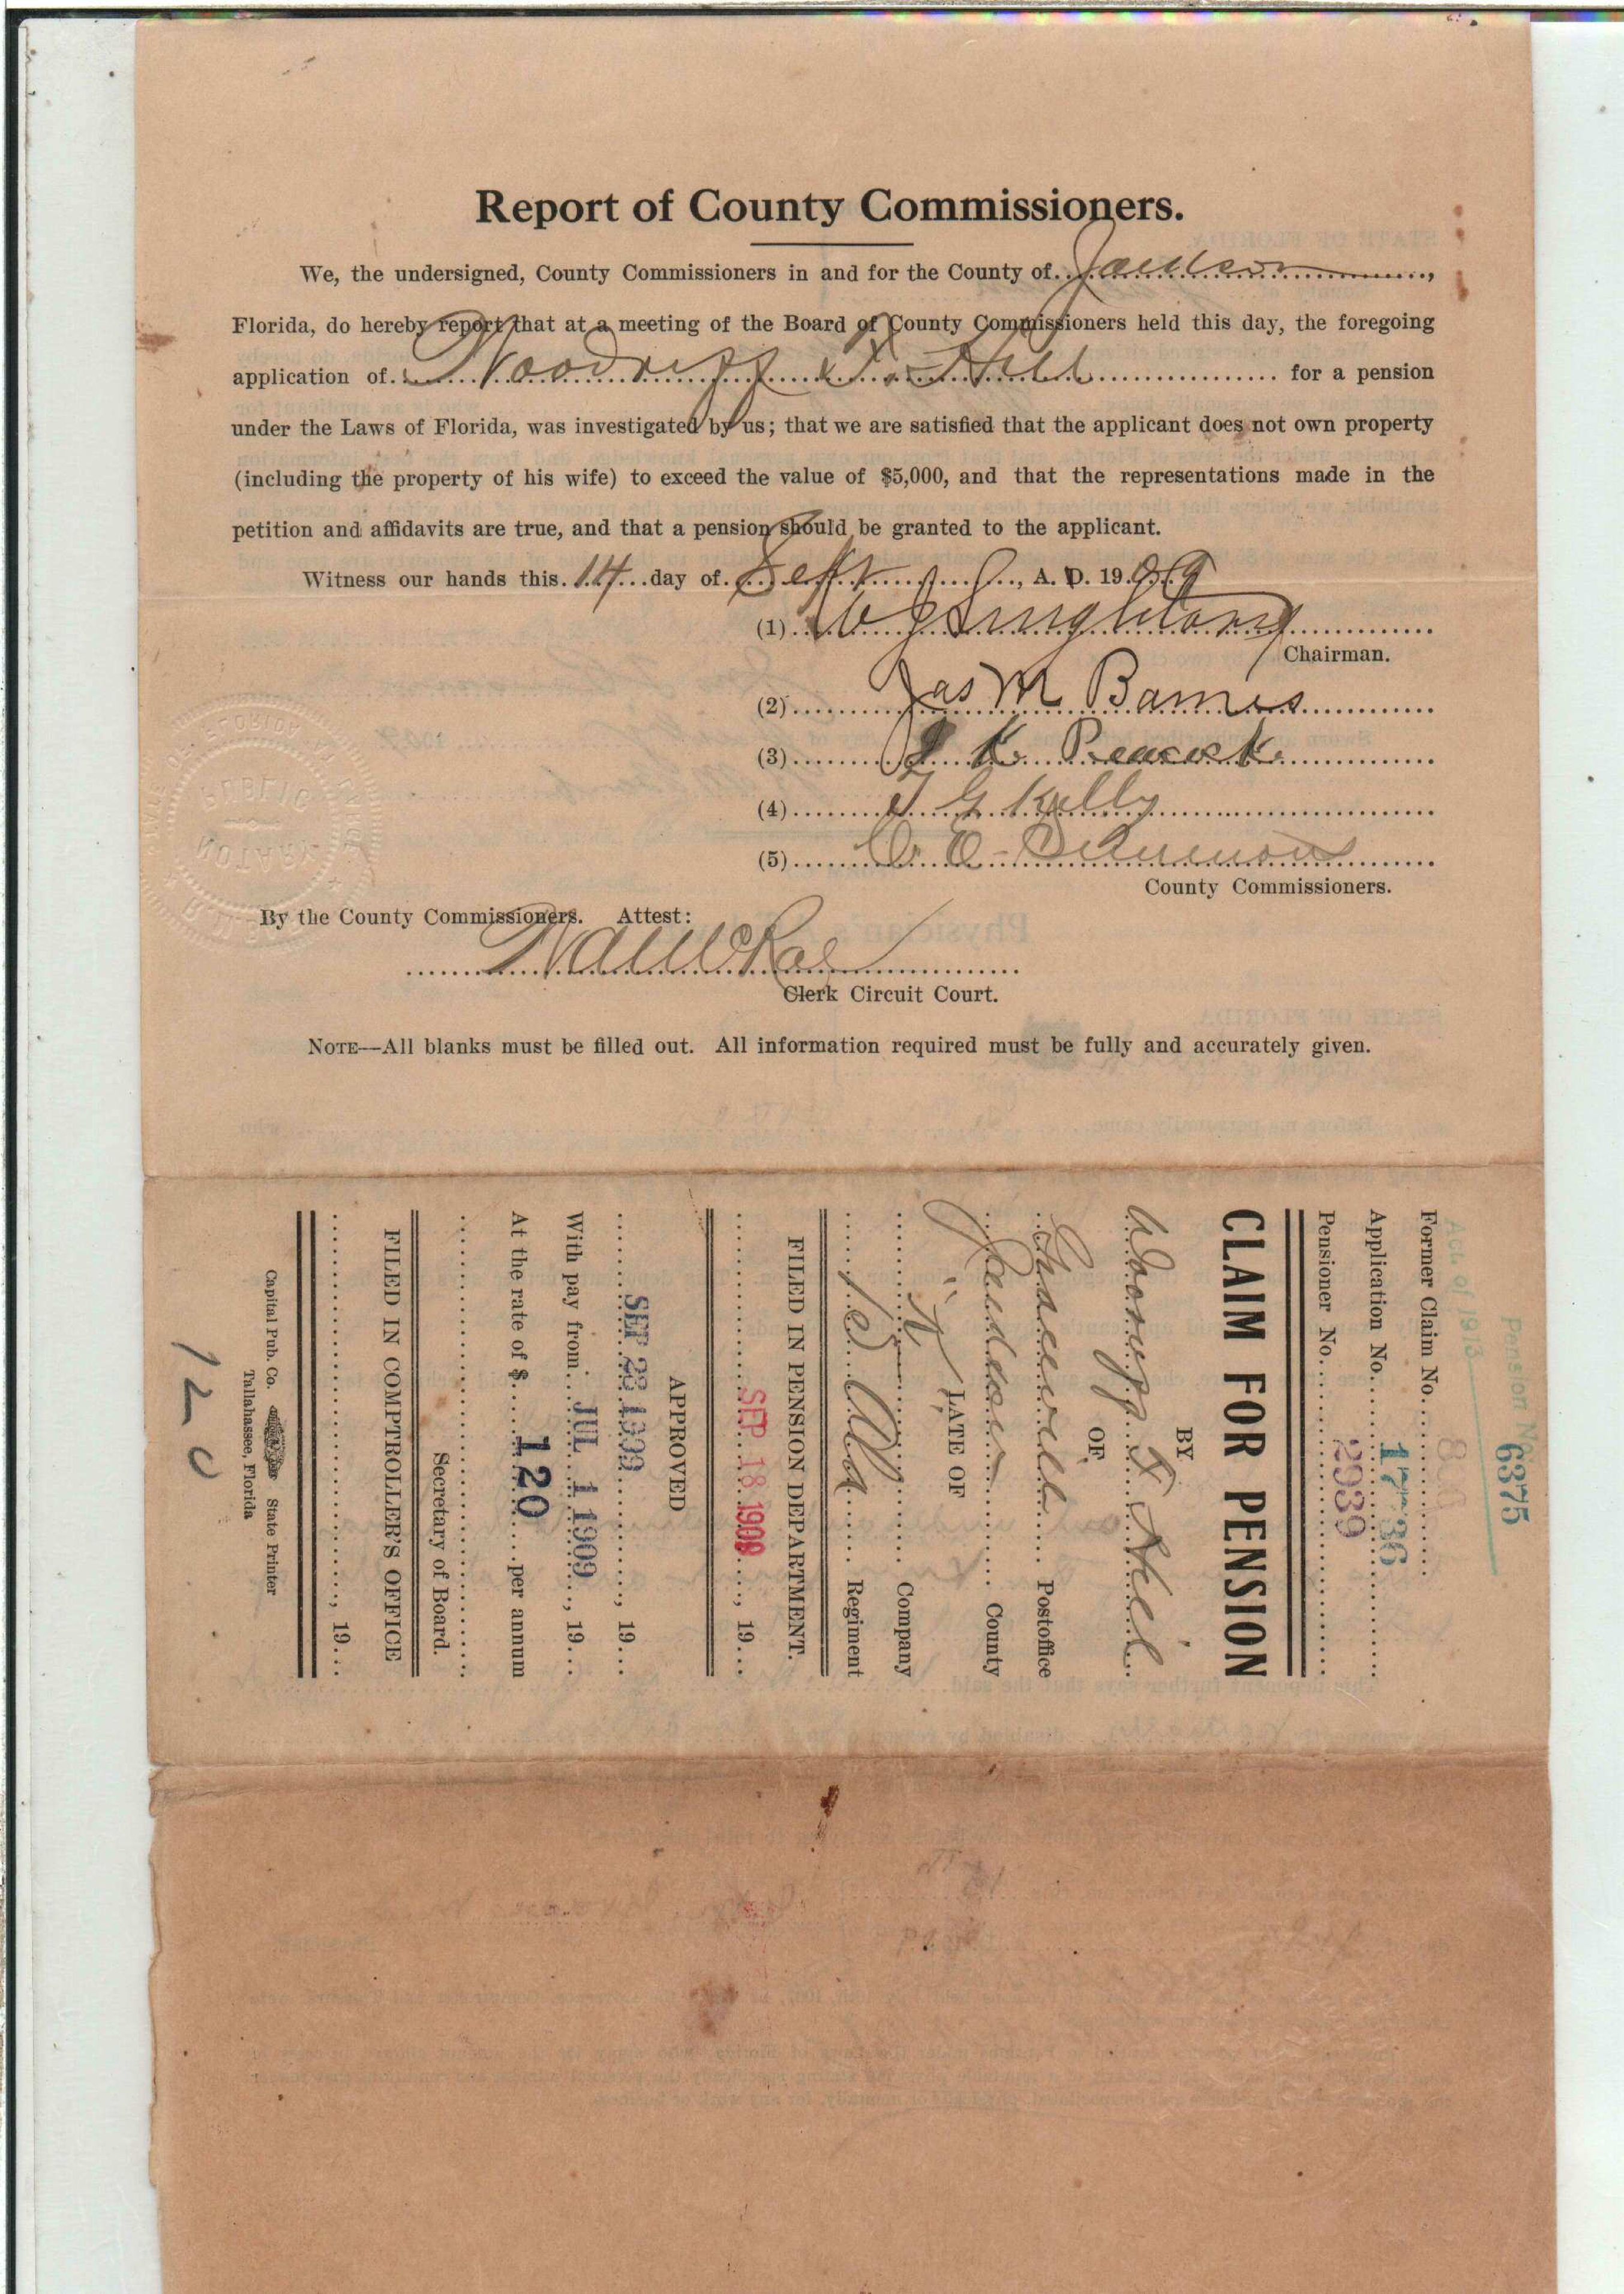 Report of County Commissioners.
We, the undersigned, County Commissioners in and for the County of Jackson,
Florida, do hereby report that at a meeting of the Board of County Commissioners held this day, the foregoing
application of Woodruff F. Hill for a pension
under the Laws of Florida, was investigated by us; that we are satisfied that the applicant does not own property
(including the property of his wife) to exceed the value of $5,000, and that the representations made in the
petition and affidavits are true, and that a pension should be granted to the applicant.
Witness our hands this 14 day of Sept, A. D. 1909
(1) Singletary
Chairman.
(2) Jas M Barnes
(3) J K Peacock
(4) G Kelly
(5)
County Commissioners.
By the County Commissioners. Attest:
McRae
Clerk Circuit Court.
NOTE—All blanks must be filled out. All information required must be fully and accurately given.
Pension No. 6375
Act of 1913
Former Claim No.
Application No. 17736
Pensioner No. 2939
CLAIM FOR PENSION
BY
F Hill
OF
Graceville Postoffice
Jackson County
LATE OF
"A" Company
15 Ala Regiment
FILED IN PENSION DEPARTMENT.
SEP 18 1909, 19
APPROVED
SEP 23 1909, 19
With pay from JUL 1 1909, 19
At the rate of $ 120 per annum
Secretary of Board.
FILED IN COMPTROLLER'S OFFICE
, 19
Capital Pub. Co. State Printer
Tallahassee, Florida
120
NOTARY PUBLIC